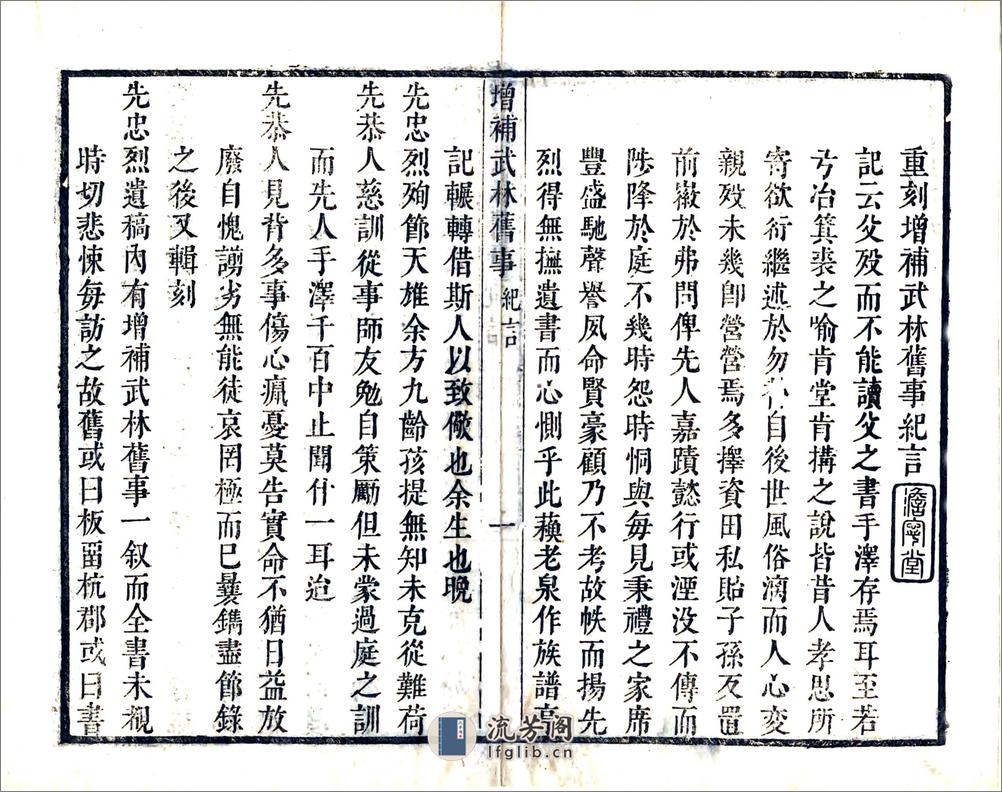 重刻增補武林舊事紀言
澹寧堂
記云父歿而不能讀父之書手澤存焉耳至若
弓冶箕裘之喻肯堂肯搆之說皆昔人孝思所
寄欲衍繼述於勿替自後世風俗漓而人心変
親歿未幾卽營營焉多擇資田私貽子孫反置
前徽於弗問俾先人嘉蹟懿行或湮没不傳而
陟降於庭不幾時怨時恫與每見秉禮之家席
豐盛馳聲譽夙命賢豪顧乃不考故帙而揚先
烈得無撫遺書而心惻乎此蘓老泉作族譜亭
增補武林舊事 紀言 一
記輾轉借斯人以致儆也余生也晚
先忠烈殉節天雄余方九齡孩提無知未克從難荷
先恭人慈訓從事師友勉自策勵但未蒙過庭之訓
而先人手澤千百中止聞什一耳迨
先恭人見背多事傷心瘋憂莫告實命不猶日益放
廢自愧謭劣無能徒哀罔極而已曩鐫盡節錄
之後又輯刻
先忠烈遺稿內有增補武林舊事一叙而全書未覩
時切悲悚每訪之故舊或曰板畱杭郡或曰書
流芳閣
lfglib.cn